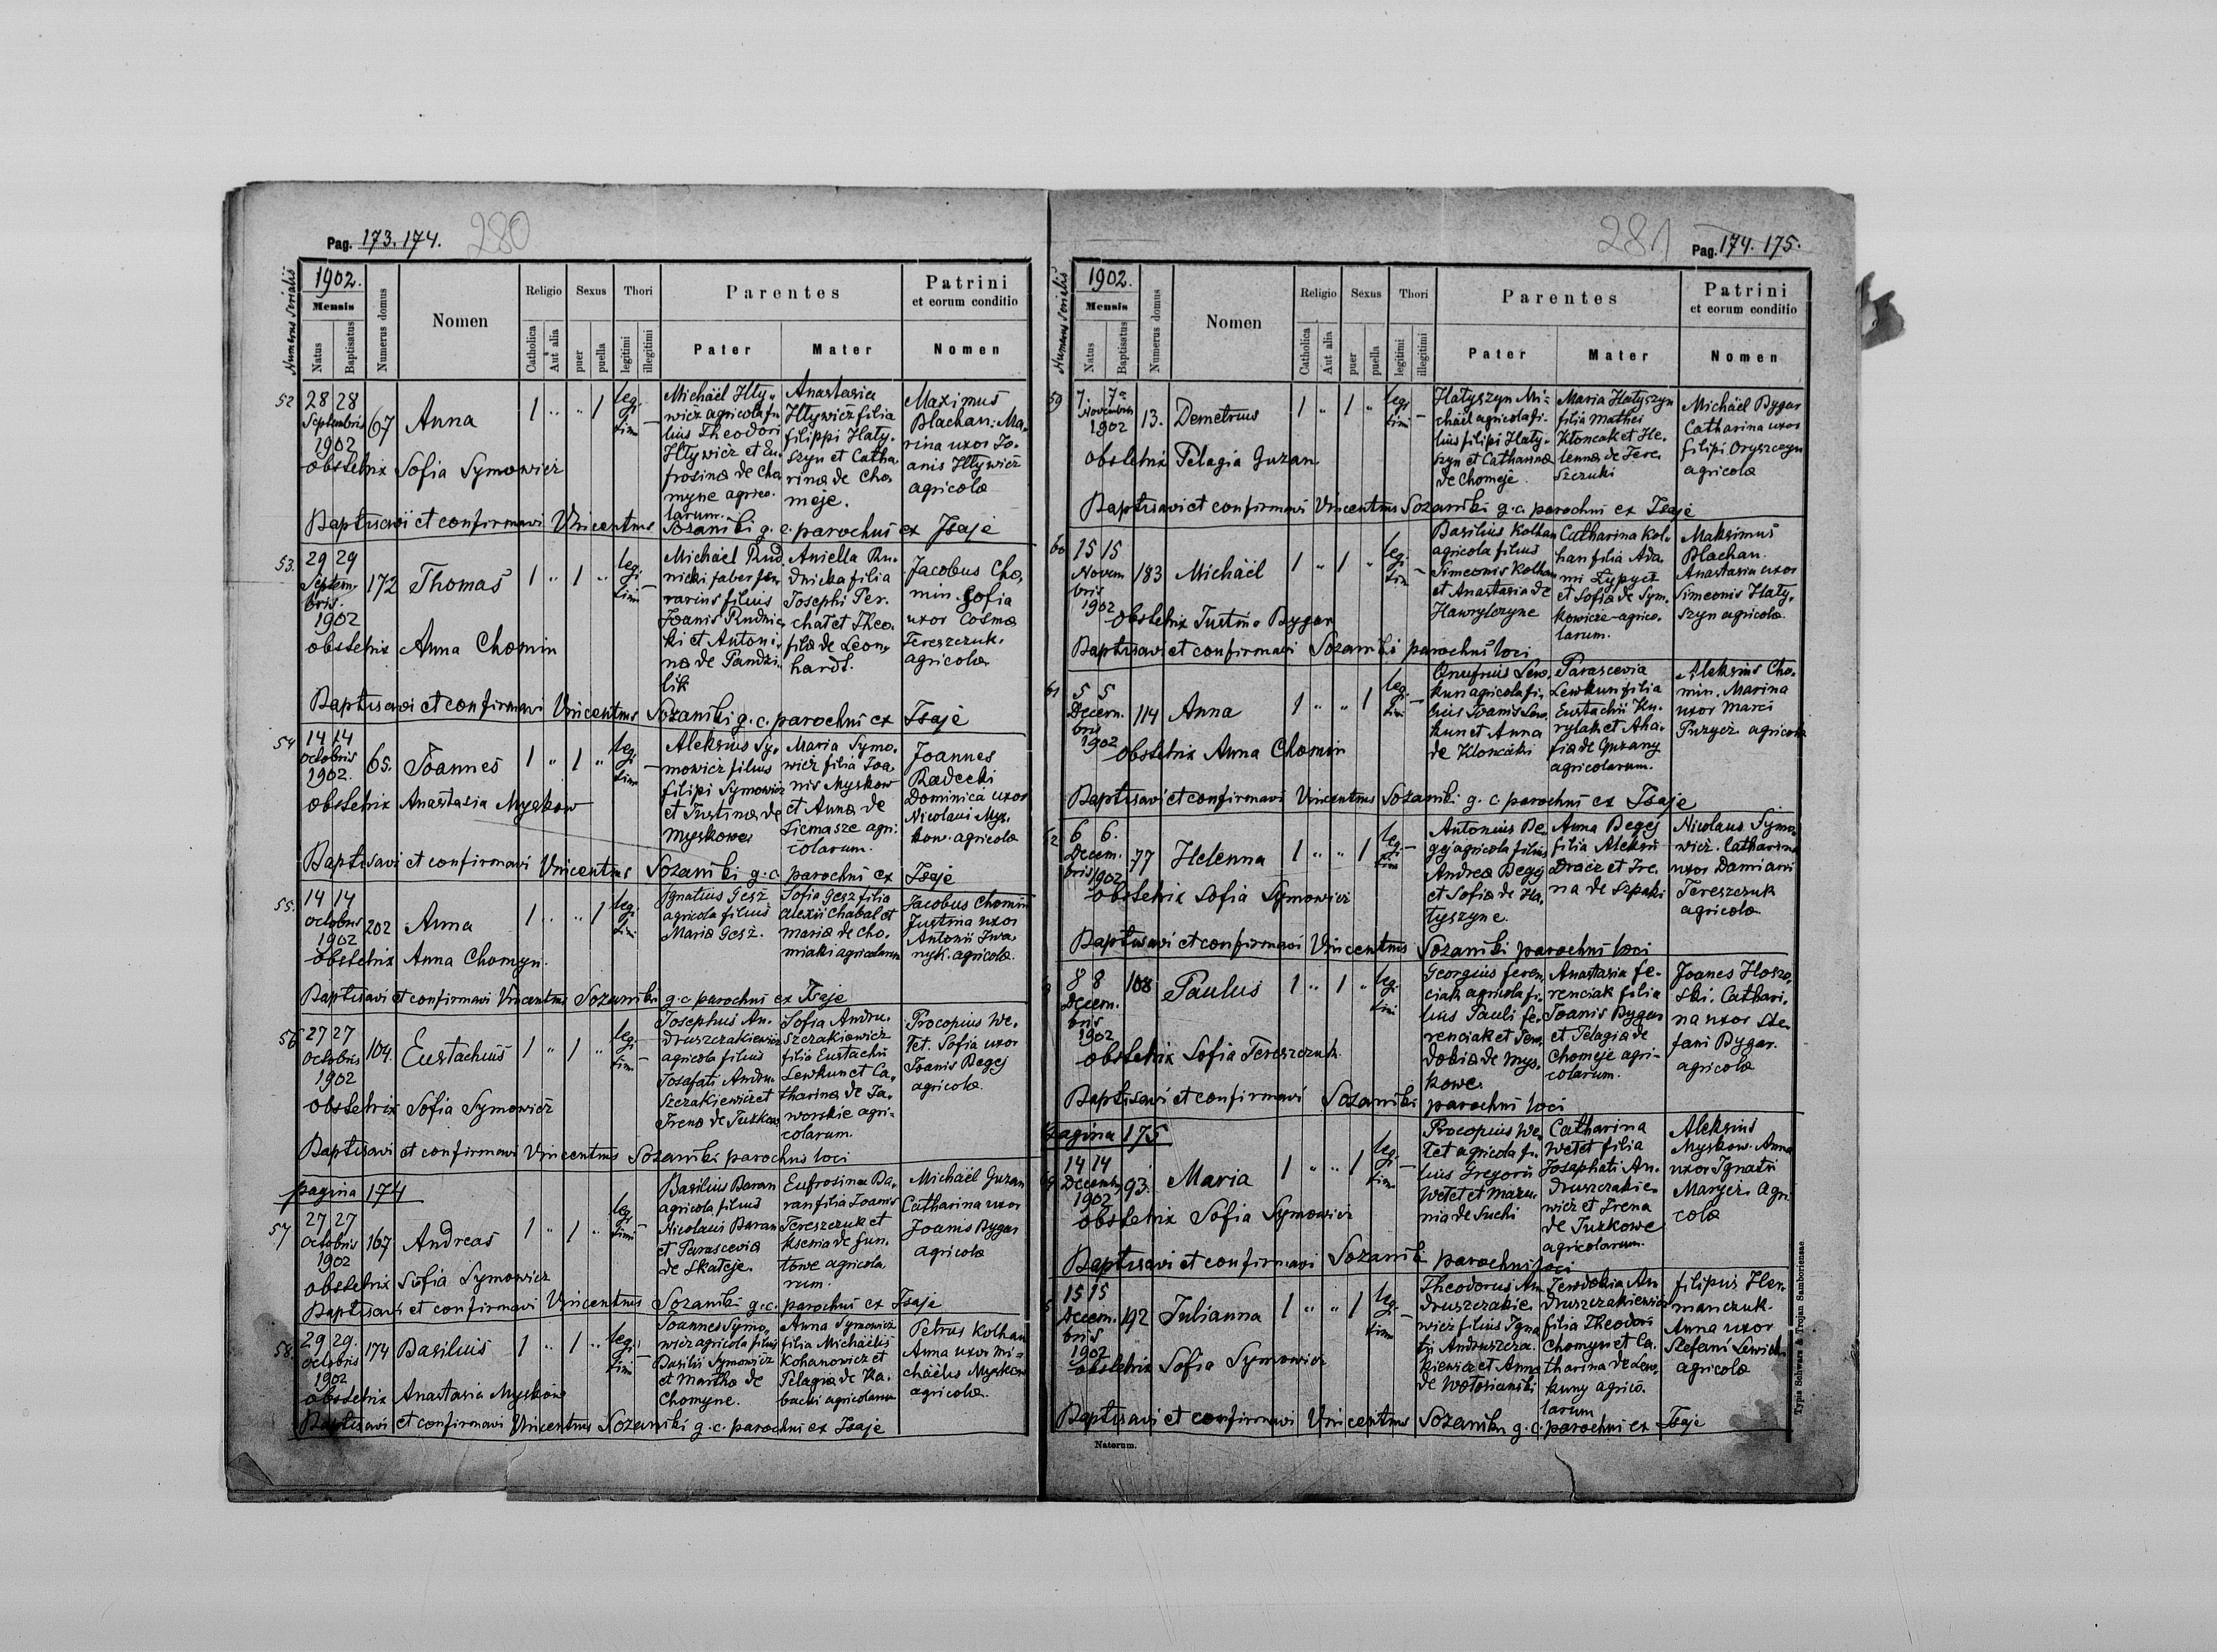 Pag. 173. 174. 280
Numerus serialis
1902.
Mensis
Natus
Baptisatus
Numerus domus
Nomen
Religio
Catholica
Aut alia
Sexus
puer
puella
Thori
legitimi
illegitimi
Parentes
Pater
Mater
Patrini
et eorum conditio
Nomen
52
28 28
Septembris
1902
67
Anna
1 " " 1
legi
timi
Michäel Hły-
wicz agricola fi
lius Theodori
Hływicz et Eu
frosina de Cho
myne agrico-
larum.
Anastasia
Hływicz filia
filippi Hały-
szyn et Catha
rina de Cho
meje.
Maximus
Blachan. Ma-
rina uxor Jo-
anis Hływicz
agricola
obstetrix Sofia Symowicz
Baptisavi et confirmavi Vincentius Sozański g. c. parochus ex Isaje
53.
29 29
Septem
bris.
1902
172
Thomas
1 " 1 "
legi
timi
Michäel Rud
nicki faber fer
rarius filius
Joanis Rudnic
ki et Antoni-
na de Pandzi
lik
Aniella Ru-
dnicka filia
Josephi Per-
chat et Theo-
fila de Leon-
hardt.
Jacobus Cho
min. Sofia
uxor Cosma
Tereszczuk.
agricola
obstetrix Anna Chomin
Baptisavi et confirmavi Vincentius Sozański g. c. parochus ex Isaje
54
14 14
octobris
1902.
65.
Joannes
1 " 1 "
legi
timi
Aleksius Sy-
mowicz filius
filipi Symowicz
et Justina de
Myskowe
Maria Symo-
wicz filia Joa-
nis Myskow
et Anna de
Licmasze agri-
colarum.
Joannes
Radecki
Dominica uxor
Nicolaui Mys-
kow. agricola
obstetrix Anastasia Myskow
Baptisavi et confirmavi Vincentius Sozański g. c. parochus ex Isaje
55.
14 14
octobris
1902
202
Anna
1 " " 1
legi
timi
Ignatius Gesz
agricola filius
Maria Gesz.
Sofia Gesz filia
Alexii Chabal et
Maria de Cho-
miaki agricolarum
Jacobus Chomin
Justina uxor
Antonii Iwa-
nyk. agricola.
obstetrix Anna Chomyn.
Baptisavi et confirmavi Vincentius Sozański g. c. parochus ex Isaje
56
27 27
octobris
1902
104.
Eustachius
1 " 1 "
legi
timi
Josephus An-
druszczakiewicz
agricola filius
Josafati Andru
szczakiewicz et
Irena de Tuzkowe
Sofia Andru-
szczakiewicz
filia Eustachii
Lewkun et Ca-
tharina de Ja-
worskie agri-
colarum.
Procopius We-
tet. Sofia uxor
Joanis Begej
agricola.
obstetrix Sofia Symowicz
Baptisavi et confirmavi Vincentius Sozański parochus loci
pagina 174
57
27 27
octobris
1902
167
Andreas
1 " 1 "
legi
timi
Basilius Baran
agricola filius
Nicolaus Baran
et Parascevia
de Skateje.
Eufrosina Ba-
ran filia Joanis
Tereszczuk et
Ksenia de fun-
towe agricola
rum.
Michäel Guzan
Catharina uxor
Joanis Bygar
agricola
obstetrix Sofia Symowicz
Baptisavi et confirmavi Vincentius Sozański g. c. parochus ex Isaje
58.
29 29.
octobris
1902
174
Basilius
1 " 1 "
legi
timi
Joannes Symo-
wicz agricola filius
Basilii Symowicz
et Martha de
Chomyne.
Anna Symowicz
filia Michäelis
Kohanowicz et
Pelagia de Ka-
backi agricolarum
Petrus Kolhan
Anna uxor Mi-
chäelis Myskow
agricola.
obstetrix Anastasia Myskowe
Baptisavi et confirmavi Vincentius Sozański g. c. parochus ex Isaje
281 Pag. 174. 175.
Numerus serialis
1902.
Mensis
Natus
Baptisatus
Numerus domus
Nomen
Religio
Catholica
Aut alia
Sexus
puer
puella
Thori
legitimi
illegitimi
Parentes
Pater
Mater
Patrini
et eorum conditio
Nomen
59
7. 7a
Novembris
1902
13.
Demetrius
1 " 1 "
legi
timi
Hałyszyn Mi-
chäel agricola fi-
lius filipi Hały-
szyn et Catharina
de Chomeje.
Maria Hałyszyn
filia Mathei
Kłoncak et He-
lenna de Tere-
szczuki
Michäel Bygar
Catharina uxor
filipi Oryszczyn
agricola
obstetrix Pelagia Guzan
Baptisavi et confirmavi Vincentius Sozański g. c. parochus ex Isaje
60
15 15
Novem
bris
1902
183
Michäel
1 " 1 "
legi
timi
Basilius Kolhan
agricola filius
Simeonis Kolhan
et Anastasia de
Hawrylczyne
Catharina Kol-
han filia Ada-
mi Zypycz
et Sofia de Sym-
kowicze agrico-
larum.
Maksimus
Blachan.
Anastasia uxor
Simeonis Hały-
szyn agricola.
obstetrix Justina Bygar
Baptisavi et confirmavi Sozański parochus loci
61
5 5
Decem.
bris
1902
114
Anna
1 " " 1
legi
timi
Onufrius Lew-
kun agricola fi-
lius Joanis Lew-
kun et Anna
de Klonczaki
Parascevia
Lewkun filia
Eustachii Ku-
rylak et Aha-
fia de Guzany
agricolarum.
Aleksius Cho-
min. Marina
uxor Marci
Puzycz. agricola
obstetrix Anna Chomin
Baptisavi et confirmavi Vincentius Sozański g. c. parochus ex Isaje
62
6 6.
Decem.
bris 1902
77
Helenna
1 " " 1
legi
timi
Antonius Be-
gej agricola filius
Andrea Begej
et Sofia de Ha-
łyszyne.
Anna Begej
filia Aleksii
Dracz et Ire-
na de Szpaki
Nicolaus Symo-
wicz. Catharina
uxor Damiani
Tereszczuk
agricola.
obstetrix Sofia Symowicz
Baptisavi et confirmavi Vincentius Sozański parochus loci
3
8 8
Decem.
bris
1902
108
Paulus
1 " 1 "
legi
timi
Georgius feren-
ciak agricola fi-
lius Pauli fe-
renciak et Jew-
dokia de Mys-
kowe.
Anastasia fe-
renciak filia
Joanis Bygar
et Pelagia de
Chomeje agri-
colarum.
Joanes Hosza-
ski. Cathari-
na uxor Ste-
fani Bygar.
agricola
obstetrix Sofia Tereszczuk.
Baptisavi et confirmavi Sozański parochus loci
Pagina 175
64
14 14
Decembr
1902
93.
Maria
1 " " 1
legi
timi
Procopius We-
tet agricola fi-
lius Gregorii
Wetet et Maru-
nia de Suchi
Catharina
Wetet filia
Josaphati An-
druszczakie-
wicz et Irena
de Tuzkowe
agricolarum.
Aleksius
Myskow. Anna
uxor Ignatii
Marycz. Agri-
cola
obstetrix Sofia Symowicz
Baptisavi et confirmavi Sozański parochus loci
5
15 15
Decem.
bris
1902
192
Julianna
1 " " 1
legi
timi
Theodorus An
druszczakie-
wicz filius Igna
tii Andruszcza-
kiewicz et Anna
de Wołosianski
Jewdokia An
druszczakiewicz
filia Theodori
Chomyn et Ca-
tharina de Lew-
kuny agrico-
larum
filipus Her-
manczuk.
Anna uxor
Stefani Lewick
agricola
obstetrix Sofia Symowicz
Baptisavi et confirmavi Vincentius Sozański g. c. parochus ex Isaje
Natorum.
Typis Schwarz & Trojan Samboriensae